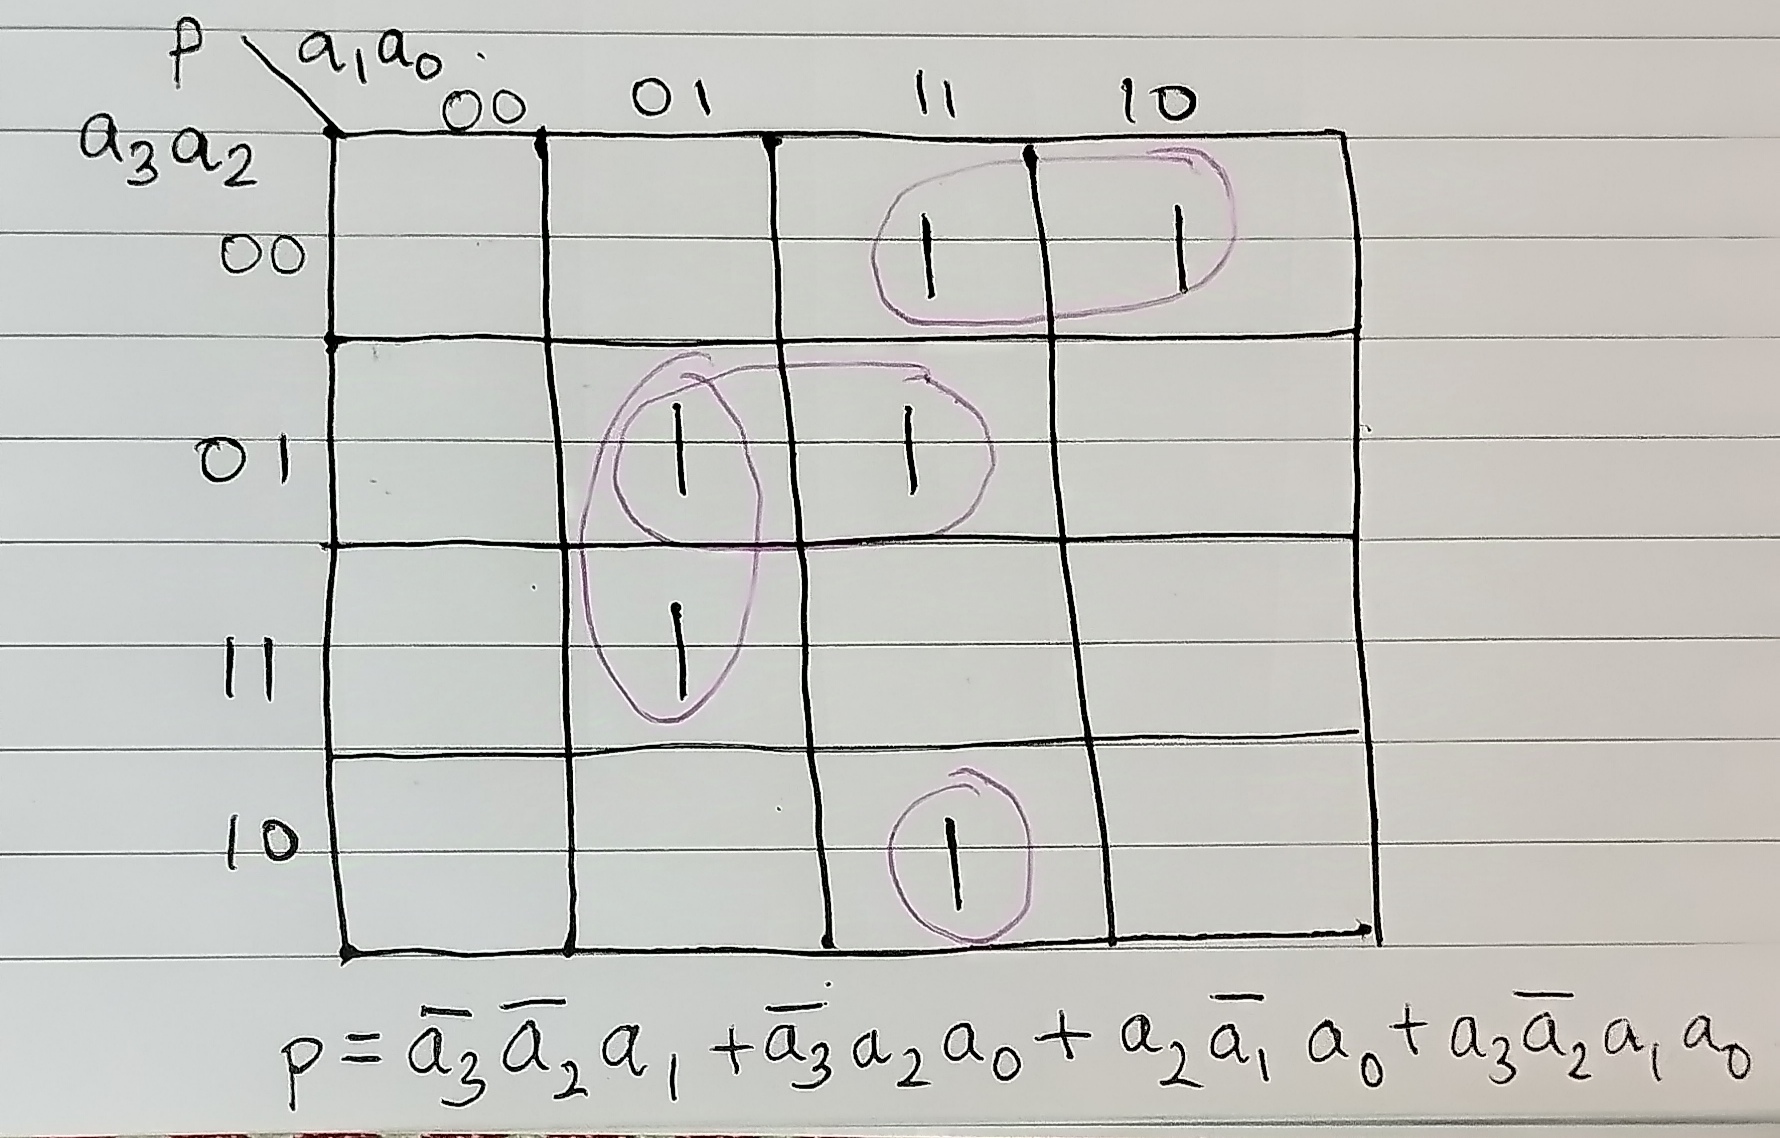 p \ a₁a₀
00 01 11 10
a₃a₂
00 1 1
01 1 1
11 1
10 1
p = a̅₃ a̅₂ a₁ + a̅₃ a₂ a₀ + a₂ a̅₁ a₀ + a₃ a̅₂ a₁ a₀